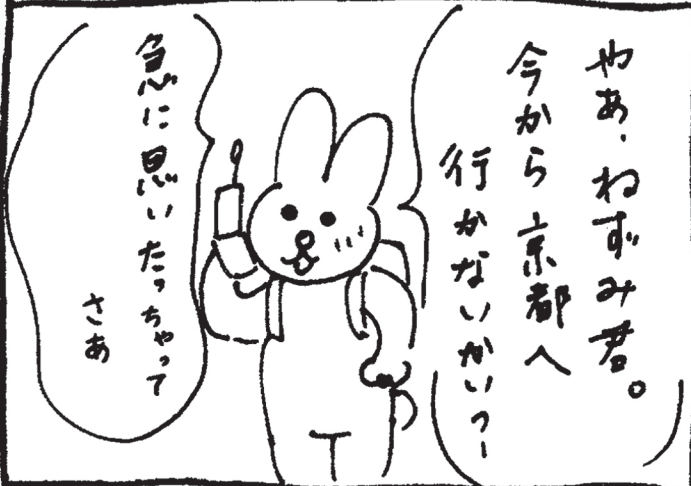 やあ、ねずみ君。
今から京都へ
行かないかいっー
急に思いたっちゃって
さあ